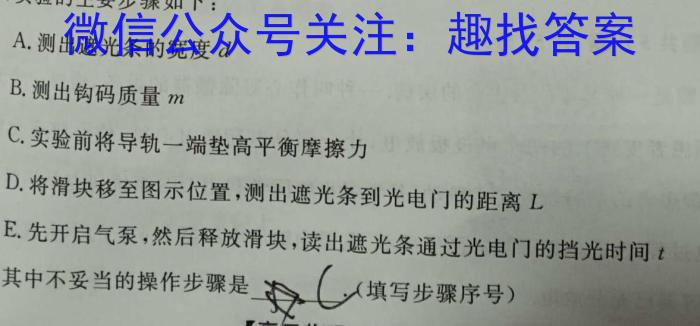 实验的主要步骤如下：
微信公众号关注：趣找答案
A.测出遮光条的宽度d
B.测出钩码质量 m
C.实验前将导轨一端垫高平衡摩擦力
D.将滑块移至图示位置,测出遮光条到光电门的距离 L
E.先开启气泵,然后释放滑块,读出遮光条通过光电门的挡光时间 t
其中不妥当的操作步骤是 C.(填写步骤序号)